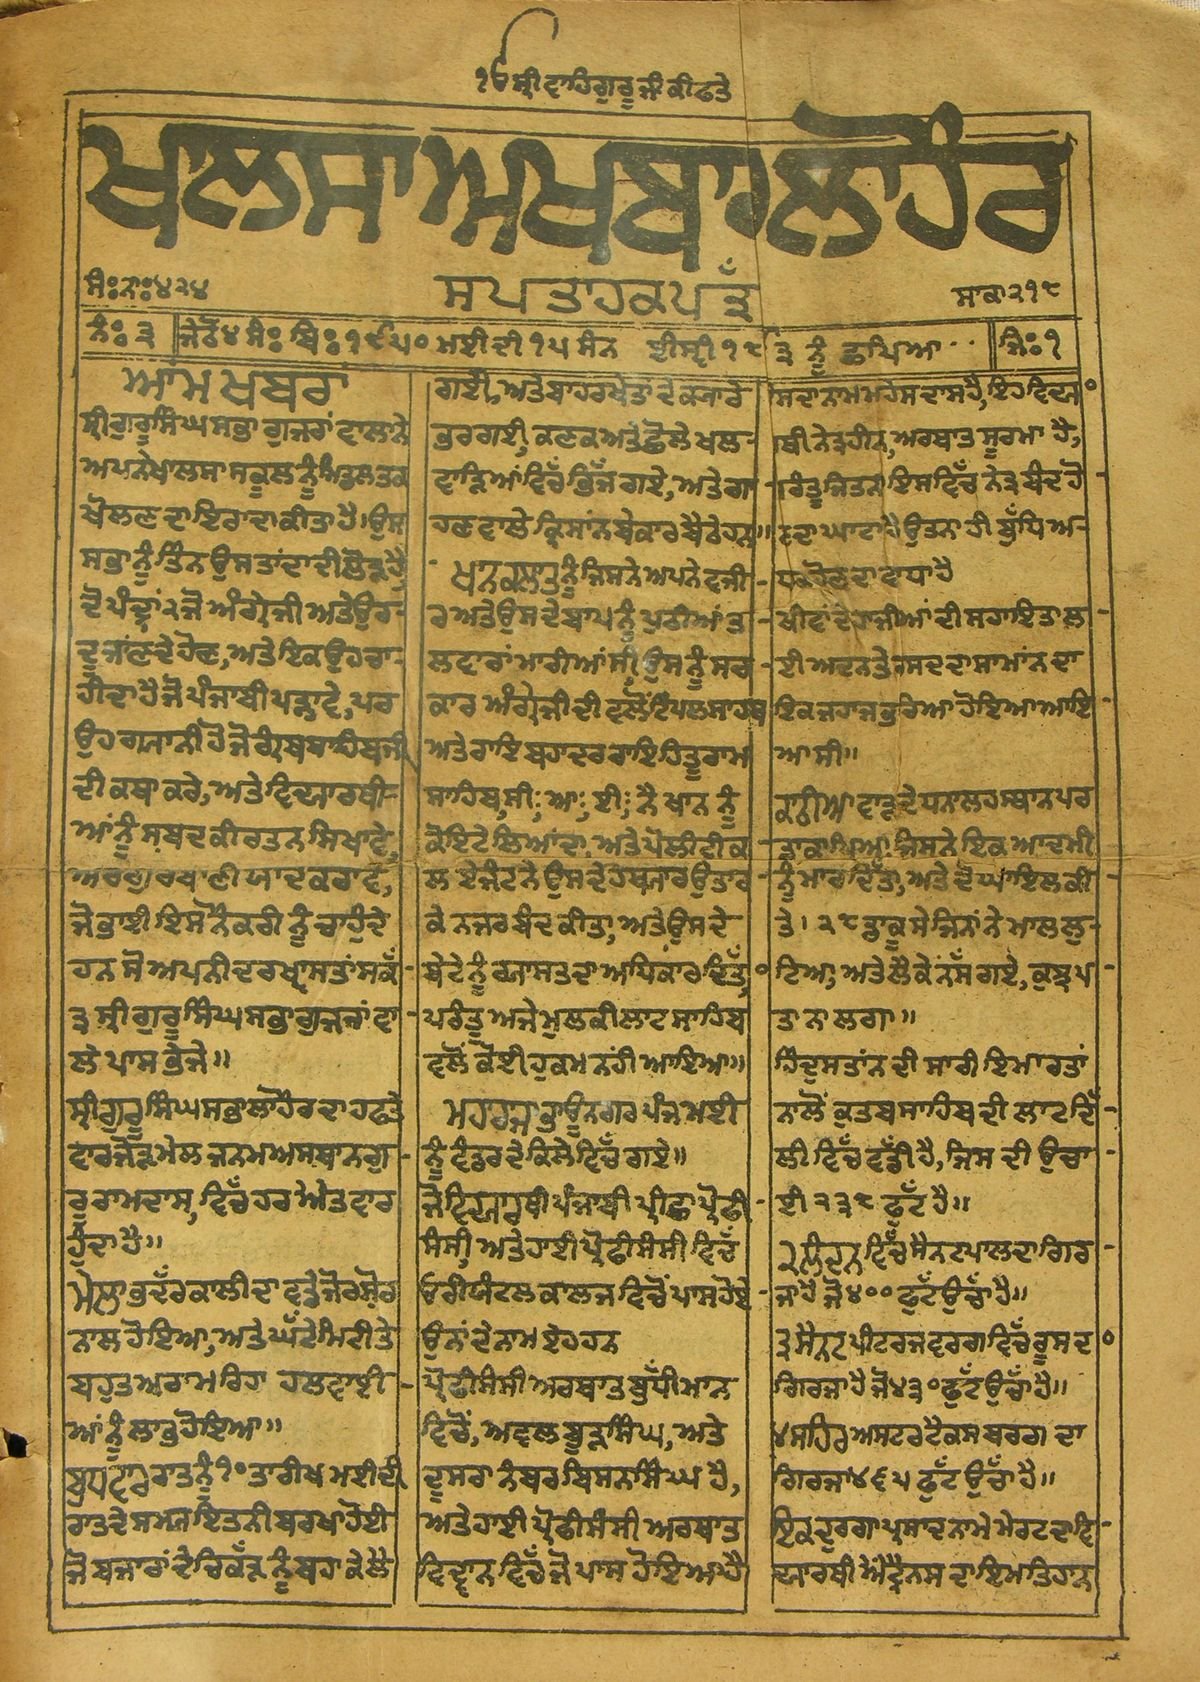 ੴ ਸ੍ਰੀ ਵਾਹਿਗੁਰੂ ਜੀ ਕੀ ਫਤੇ
ਖਾਲਸਾ ਅਖਬਾਰ ਲਾਹੌਰ
ਸਪਤਾਹਕ ਪਤ੍ਰ
ਸੰ:ਨਾ:੪੨੪
ਸਾਕਾ ੨੧੮
ਨੰ: ੩
ਜੇਠ ੪ ਸੰ: ਬਿ: ੧੯੫੦ ਮਈ ਦੀ ੧੫ ਸੰਨ ਈਸ੍ਵੀ ੧੮੯੩ ਨੂੰ ਛਪਿਆ
ਜਿ: ੧
ਆਮ ਖਬਰਾਂ
ਸ੍ਰੀ ਗੁਰੂ ਸਿੰਘ ਸਭਾ ਗੁਜਰਾਂ ਵਾਲਾ ਨੇ
ਅਪਨੇ ਖਾਲਸਾ ਸਕੂਲ ਨੂੰ ਮਿਡਲ ਤਕ
ਖੋਲਣ ਦਾ ਇਰਾਦਾ ਕੀਤਾ ਹੈ। ਉਸ
ਸਭਾ ਨੂੰ ਤਿੰਨ ਉਸਤਾਂਦਾ ਦੀ ਲੋੜ ਹੈ
ਦੂ ਜਾਂਣਦੇ ਹੋਣ, ਅਤੇ ਇਕ ਉਹ ਚਾ-
ਹੀਦਾ ਹੈ ਜੋ ਪੰਜਾਬੀ ਪੜ੍ਹਾਵੇ, ਪਰ
ਉਹ ਗਯਾਨੀ ਹੋ ਜੋ ਗ੍ਰੰਥ ਸਾਹਿਬ ਜੀ
ਦੀ ਕਥਾ ਕਰੇ, ਅਤੇ ਵਿਦਯਾਰਥੀ-
ਆਂ ਨੂੰ ਸਬਦ ਕੀਰਤਨ ਸਿਖਾਵੇ,
ਅਰ ਗੁਰਬਾਣੀ ਯਾਦ ਕਰਾਵੇ,
ਜੋ ਭਾਈ ਇਸ ਨੌਕਰੀ ਨੂੰ ਚਾਹੁੰਦੇ
ਹਨ ਸੋ ਅਪਨੀ ਦਰਖ੍ਵਾਸਤਾਂ ਸਕੱ
ਤ੍ਰ ਸ੍ਰੀ ਗੁਰੂ ਸਿੰਘ ਸਭਾ ਗੁਜਰਾਂ ਵਾ-
ਲੇ ਪਾਸ ਭੇਜੇ॥
ਸ੍ਰੀ ਗੁਰੂ ਸਿੰਘ ਸਭਾ ਲਾਹੌਰ ਦਾ ਹਫਤੇ
ਵਾਰ ਜੋੜ ਮੇਲ ਜਨਮ ਅਸਥਾਨ ਗੁ-
ਰੂ ਰਾਮਦਾਸ, ਵਿੱਚ ਹਰ ਐਤਵਾਰ
ਹੁੰਦਾ ਹੈ॥
ਮੇਲਾ ਭਦ੍ਰਕਾਲੀ ਦਾ ਵਡੇ ਜੋਰ ਸ਼ੋਰ
ਨਾਲ ਹੋਇਆ, ਅਤੇ ਘੱਟੇ ਮਿਟੀ ਤੇ
ਬਹੁਤ ਅਰਾਮ ਰਿਹਾ ਹਲਵਾਈ-
ਆਂ ਨੂੰ ਲਾਭ ਹੋਇਆ॥
ਬੁਧਵਾਰ ਰਾਤ ਨੂੰ ੧੦ ਤਾਰੀਖ ਮਈ ਦੀ
ਰਾਤ ਦੇ ਸਮਯ ਇਤਨੀ ਬਰਖਾ ਹੋਈ
ਜੋ ਬਜਾਰਾਂ ਦੇ ਚਿਕੜ ਨੂੰ ਬਹਾ ਕੇ ਲੈ
ਗਈ, ਅਤੇ ਬਾਹਰ ਖੇਤਾਂ ਦੇ ਕਯਾਰੇ
ਭਰ ਗਏ, ਕਣਕ ਅਤੇ ਛੋਲੇ ਖਲ-
ਵਾੜਿਆਂ ਵਿੱਚ ਭਿੱਜ ਗਏ, ਅਤੇ ਗਾ
ਹਣ ਵਾਲੇ ਕ੍ਰਿਸਾਨ ਬੇਕਾਰ ਬੈਠੇ ਹਨ॥
ਖਾਨ ਕਲਾਤ ਨੂੰ ਜਿਸਨੇ ਅਪਨੇ ਵਜੀ-
ਰ ਅਤੇ ਉਸ ਦੇ ਬਾਪ ਨੂੰ
ਲਵਾਰਾਂ ਮਾਰੀਆਂ ਸੀ, ਉਸ ਨੂੰ ਸਰ
ਕਾਰ ਅੰਗ੍ਰੇਜੀ ਦੀ ਵਲੋਂ
ਅਤੇ ਰਾਇ ਬਹਾਦਰ ਰਾਇ ਹਿਤੂ ਰਾਮ
ਸਾਹਿਬ, ਸੀ: ਆ: ਈ: ਨੇ ਖਾਨ ਨੂੰ
ਕੋਇਟੇ ਲਿਆਂਦਾ, ਅਤੇ ਪੋਲੀਟੀਕ
ਲ ਏਜੰਟ ਨੇ ਉਸ ਦੇ ਹਥਯਾਰ ਉਤਾਰ
ਕੇ ਨਜਰਬੰਦ ਕੀਤਾ, ਅਤੇ ਉਸ ਦੇ
ਬੇਟੇ ਨੂੰ ਰਯਾਸਤ ਦਾ ਅਧਿਕਾਰ ਦਿੱਤਾ,
ਪਰੰਤੂ ਅਜੇ ਮੁਲਕੀ ਲਾਟ ਸਾਹਿਬ
ਵਲੋਂ ਕੋਈ ਹੁਕਮ ਨਹੀਂ ਆਇਆ॥
ਮਹਾਰਾਜਾ ਭਾਉਨਗਰ ਪੰਜ ਮਈ
ਨੂੰ ਵਿੰਡਸਰ ਦੇ ਕਿਲੇ ਵਿੱਚ ਗਏ॥
ਜੋ ਵਿਦਯਾਰਥੀ ਪੰਜਾਬੀ ਪ੍ਰੀਛਾ ਪ੍ਰੋਫੀ-
ਸੰਸੀ, ਅਤੇ ਹਾਈ ਪ੍ਰੋਫੀਸੰਸੀ ਵਿੱਚ
ਓਰੀਯੰਟਲ ਕਾਲਜ ਵਿਚੋਂ ਪਾਸ ਹੋਏ
ਉਨਾਂ ਦੇ ਨਾਮ ਏਹ ਹਨ
ਪ੍ਰੋਫੀਸੰਸੀ ਅਰਥਾਤ ਬੁੱਧੀਮਾਨ
ਵਿਚੋਂ, ਅਵਲ ਬੁੜ ਸਿੰਘ, ਅਤੇ
ਦੂਸਰਾ ਨੰਬਰ ਬਿਸਨ ਸਿੰਘ ਹੈ,
ਅਤੇ ਹਾਈ ਪ੍ਰੋਫੀਸੰਸੀ ਅਰਥਾਤ
ਵਿਦ੍ਵਾਨ ਵਿੱਚੋਂ ਜੋ ਪਾਸ ਹੋਇਆ ਹੈ
ਸਦਾ ਨਾਮ ਮਹੇਸ ਦਾਸ ਹੈ, ਇਹ ਵਿਦਯਾ
ਰਥੀ ਨੇਤ੍ਰਹੀਨ, ਅਰਥਾਤ ਸੂਰਮਾ ਹੈ,
ਪਰੰਤੂ ਜਿਤਨਾ ਇਸ ਵਿੱਚ ਨੇਤ੍ਰ ਬੰਦ ਹੋ-
ਣ ਦਾ ਘਾਟਾ ਹੈ ਉਤਨਾ ਹੀ ਬੁੱਧਿ ਅ-
ਧਕ ਹੋਣ ਦਾ ਵਾਧਾ ਹੈ
ਖੀਵਾਂ ਦੇ ਹਾਜੀਆਂ ਦੀ ਸਹਾਇਤਾ ਲ-
ਈ ਅਦਨ ਤੇ ਰਸਦ ਦਾ ਸਾਮਾਂਨ ਦਾ
ਇਕ ਜਹਾਜ ਭਰਿਆ ਹੋਇਆ ਆਇ
ਆ ਸੀ॥
ਕਾਠੀਆਵਾੜ ਦੇ ਧਨਾਲਹ ਸਥਾਨ ਪਰ
ਡਾਕਾ ਪਿਆ, ਜਿਸਨੇ ਇਕ ਆਦਮੀ
ਨੂੰ ਮਾਰ ਦਿੱਤਾ, ਅਤੇ ਦੋ ਘਾਇਲ ਕੀ
ਤੇ। ੨੮ ਡਾਕੂ ਸੇ ਜਿਨਾਂ ਨੇ ਮਾਲ ਲੁ-
ਟਿਆ, ਅਤੇ ਲੈਕੇ ਨੱਸ ਗਏ, ਕੁਝ ਪ
ਤਾ ਨਾ ਲਗਾ॥
ਹਿੰਦੁਸਤਾਂਨ ਦੀ ਸਾਰੀ ਇਮਾਰਤਾਂ
ਨਾਲੋਂ ਕੁਤਬ ਸਾਹਿਬ ਦੀ ਲਾਟ ਦਿੱ
ਲੀ ਵਿੱਚ ਵੱਡੀ ਹੈ, ਜਿਸ ਦੀ ਉਚਾ-
ਈ ੨੩੮ ਫੁੱਟ ਹੈ॥
੨ ਲੰਦਨ ਵਿੱਚ ਸੈਨਟਪਾਲ ਦਾ ਗਿਰ-
ਜਾ ਹੈ ਜੋ ੪੦੦ ਫੁੱਟ ਉਚਾ ਹੈ॥
੩ ਸੈਨਟ ਪੀਟਰਜ ਵਰਗ ਵਿੱਚ ਰੂਸ ਦਾ
ਗਿਰਜਾ ਹੈ ਜੋ ੪੩੦ ਫੁੱਟ ਉਚਾ ਹੈ॥
੪ ਸਹਿਰ ਅਸਟਰਟੈਕਸ ਬਰਗ ਦਾ
ਗਿਰਜਾ ੪੬੫ ਫੁੱਟ ਉਚਾ ਹੈ॥
ਇਕ ਦੁਰਗਾ ਪ੍ਰਸਾਦ ਨਾਮੇ ਮੇਰਟ ਦਾ ਵਿ
ਦਯਾਰਥੀ ਐਂਟ੍ਰੈਨਸ ਦਾ ਇਮਤਿਹਾਨ